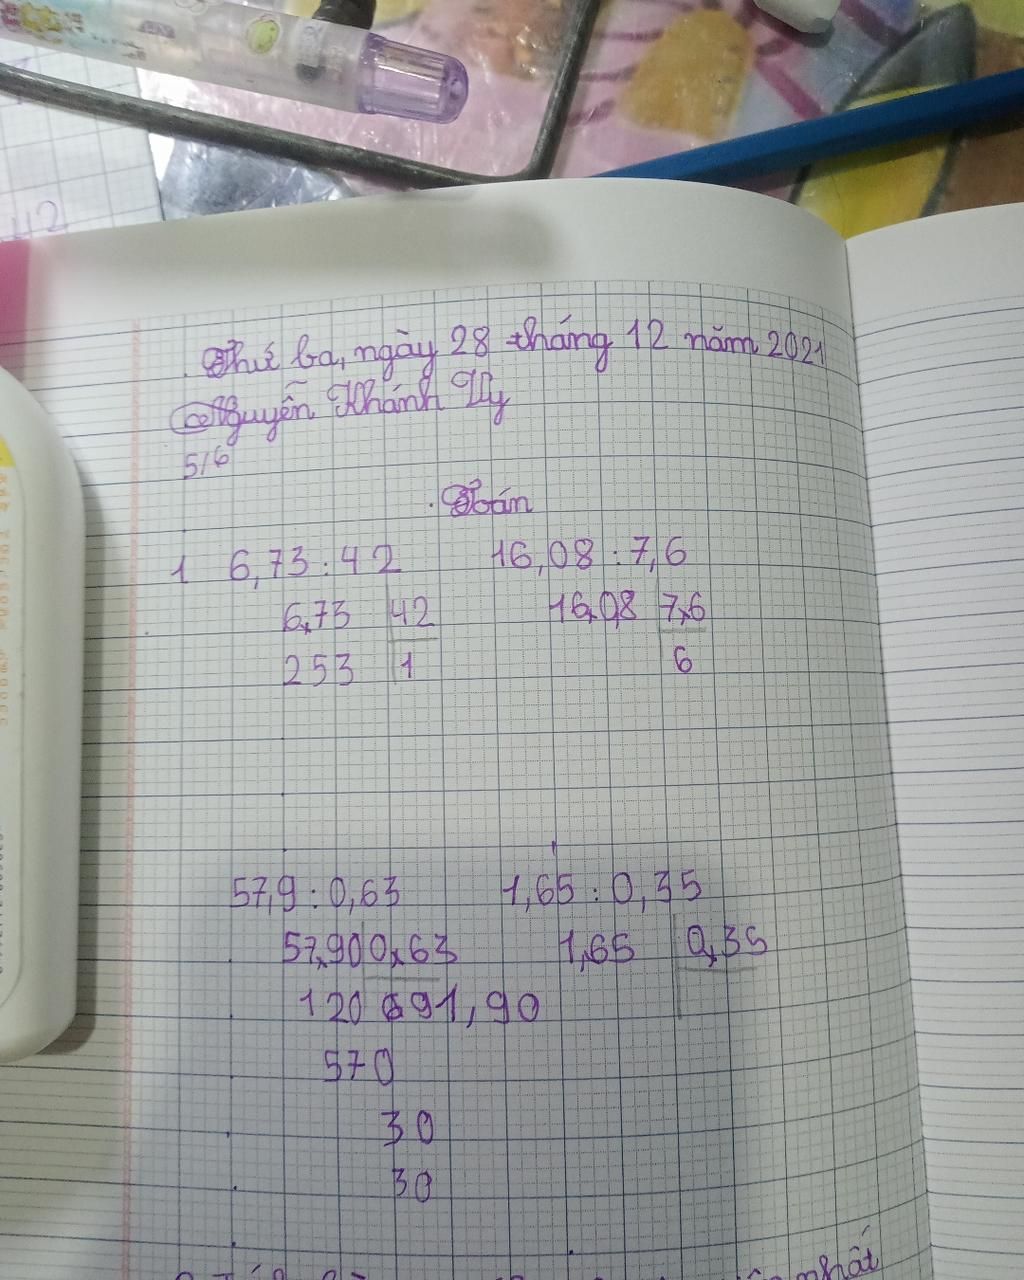 42
Thứ ba, ngày 28 tháng 12 năm 2021
Nguyễn Khánh Vy
5/6
Toán
1 6,73 : 42 16,08 : 7,6
6,73 42 16,08 7,6
253 1 6
57,9 : 0,63 1,65 : 0,35
57,90 0,63 1,65 0,35
120 91,90
570
30
30
nhất